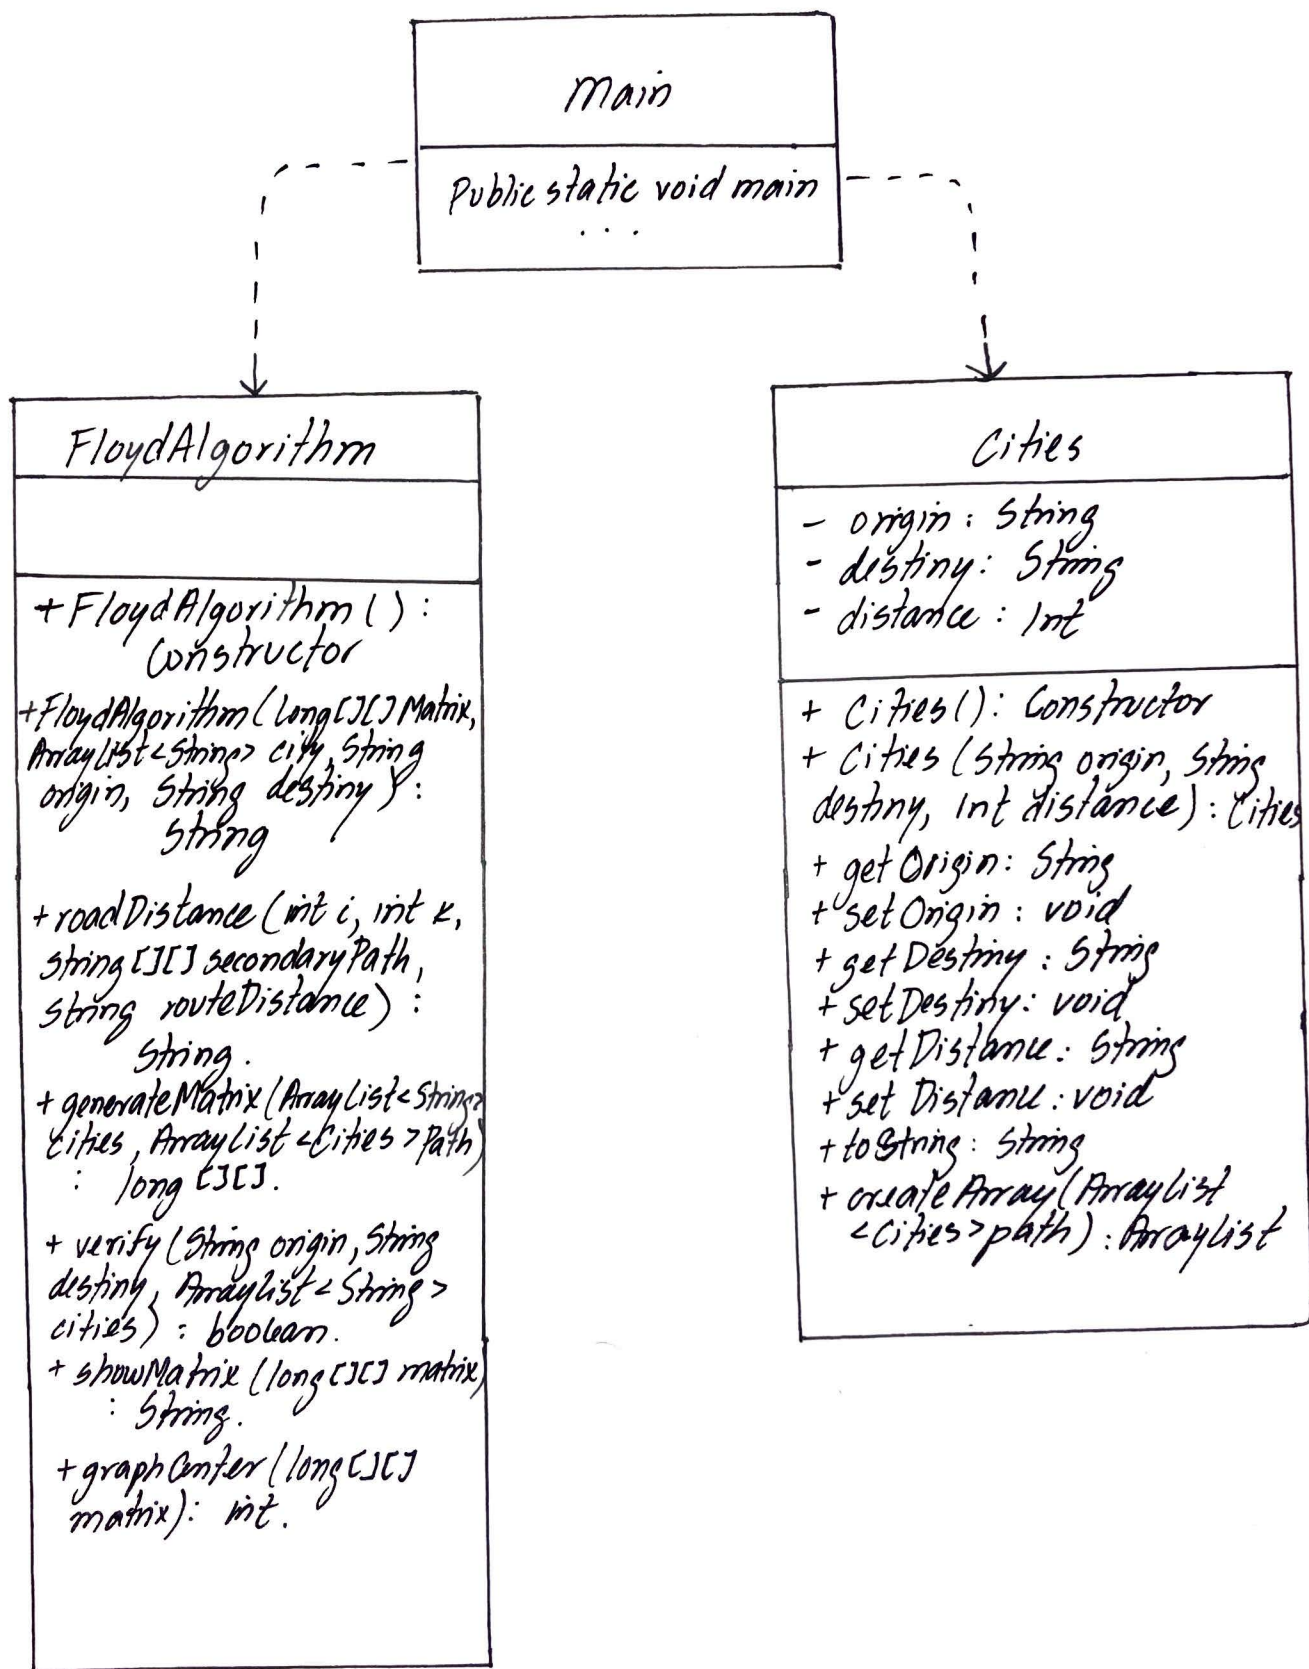 Main
Public static void main
...
FloydAlgorithm
+ FloydAlgorithm() :
Constructor
+ FloydAlgorithm(long[][] Matrix,
ArrayList<String> city, String
origin, String destiny) :
String
+ roadDistance (int i, int k,
String[][] secondaryPath,
String routeDistance) :
String.
+ generateMatrix(ArrayList<String>
cities, ArrayList<Cities> Path)
: long [][].
+ verify (String origin, String
destiny, ArrayList<String>
cities) : boolean.
+ showMatrix (long[][] matrix)
: String.
+ graphCenter (long[][]
matrix): int.
Cities
- origin : String
- destiny: String
- distance : Int
+ Cities(): Constructor
+ Cities (String origin, String
destiny, int distance) : Cities
+ getOrigin: String
+ setOrigin : void
+ getDestiny : String
+ setDestiny: void
+ getDistance: String
+ set Distance: void
+ toString: String
+ createArray(ArrayList
<Cities> path) : ArrayList